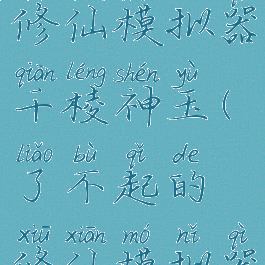 修仙模拟器
qiān léng shén yù
千棱神玉(
liǎo bù qǐ de
了不起的
xiū xiān mó nǐ qì
修仙模拟器